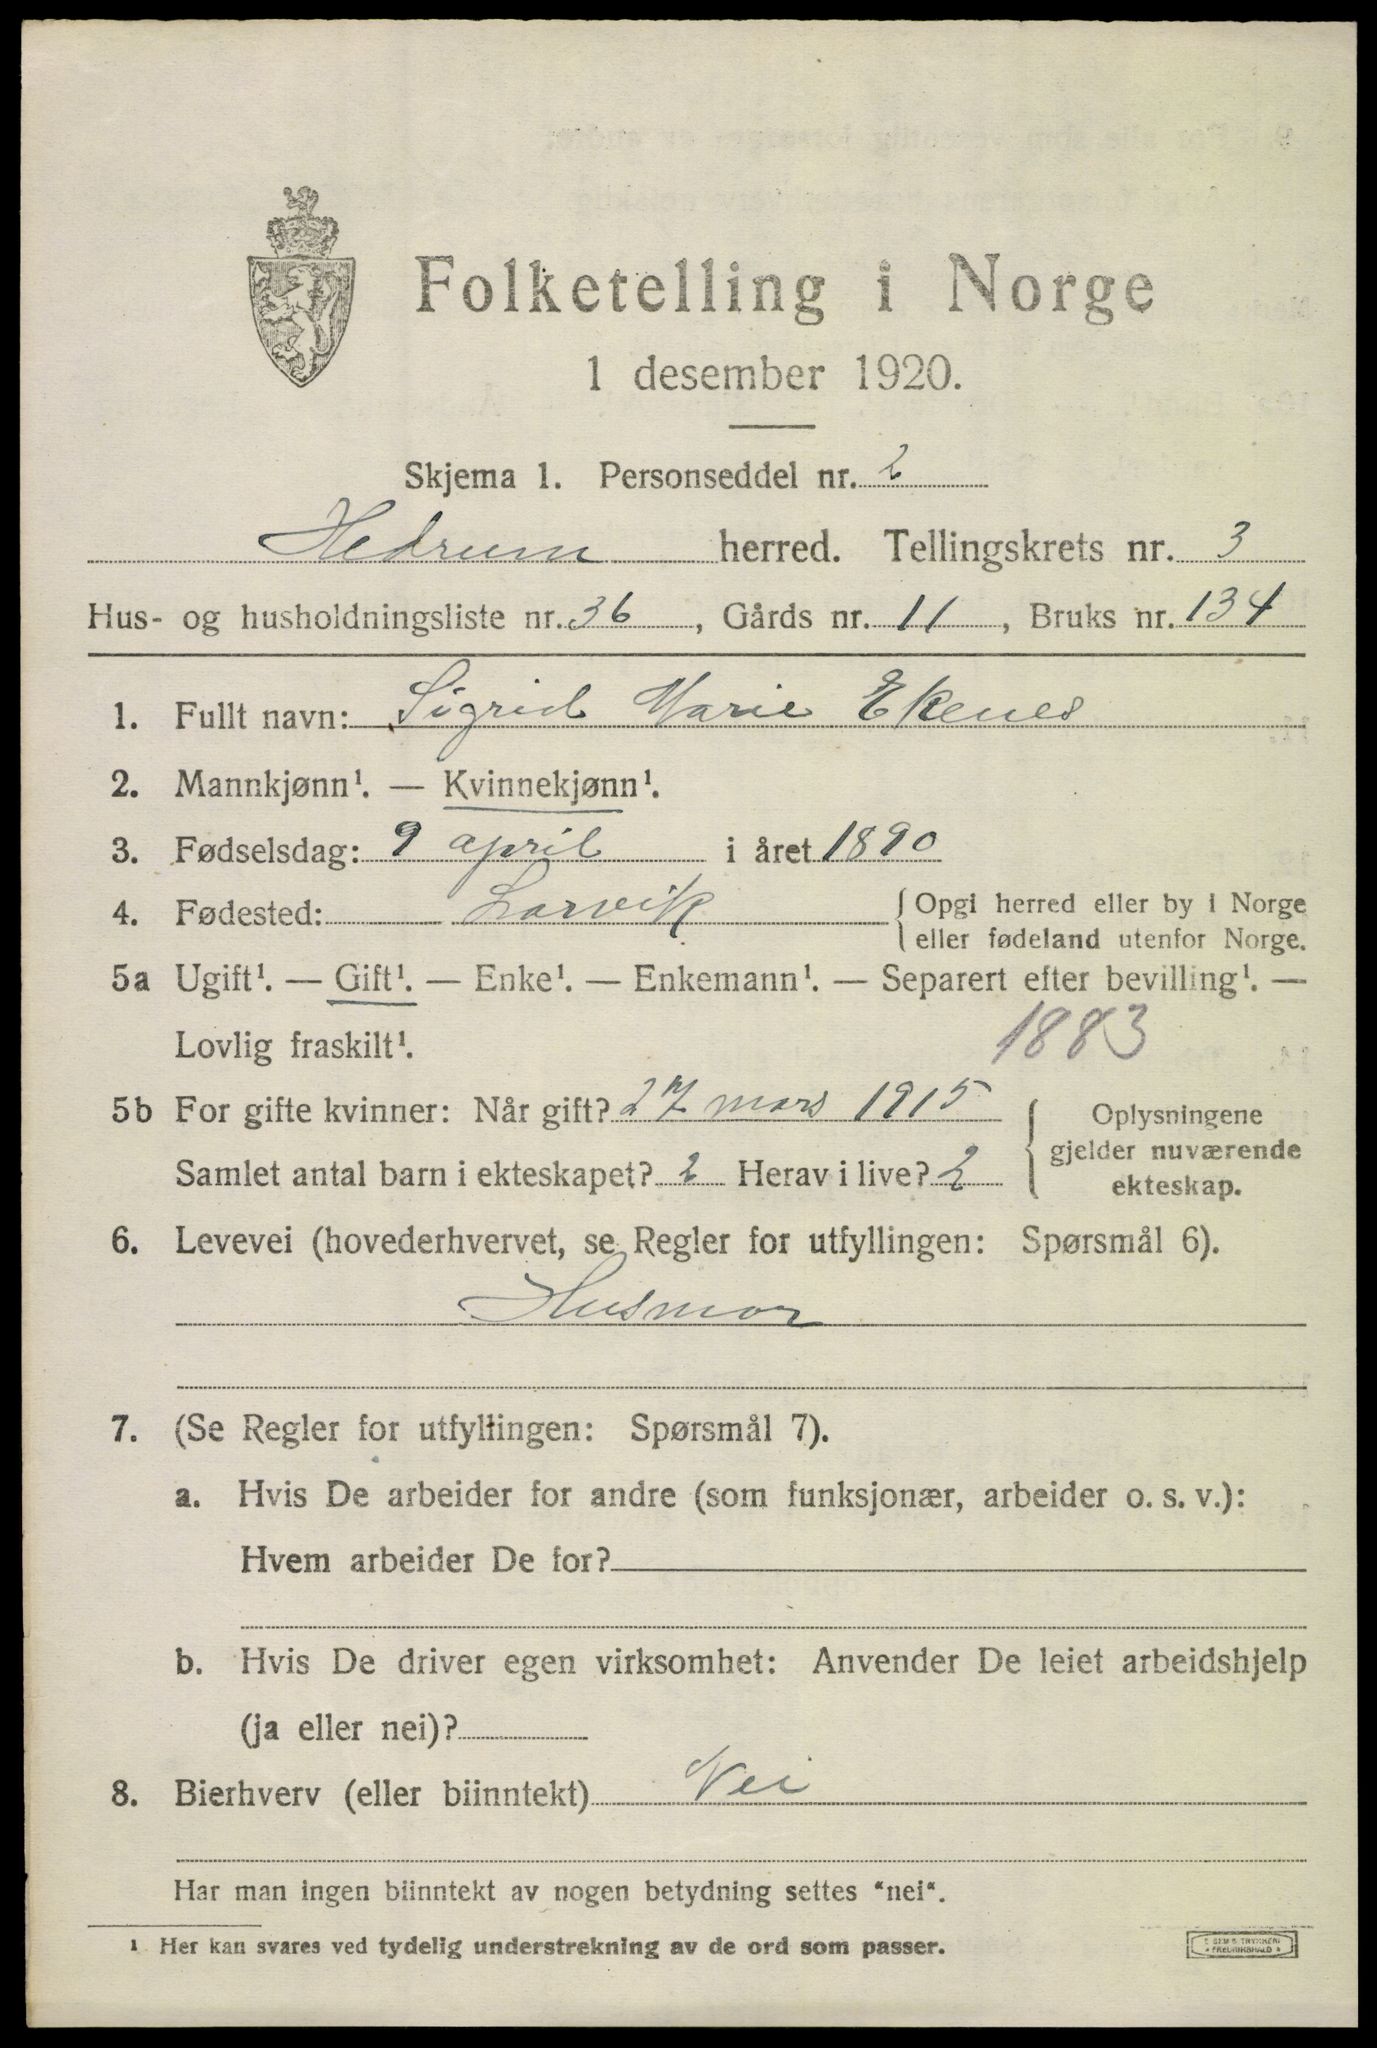 Folketelling i Norge
1 desember 1920.
Skjema 1. Personseddel nr. 2
Hedrum herred. Tellingskrets nr. 3
Hus- og husholdningsliste nr. 36, Gårds nr. 11, Bruks nr. 134
1. Fullt navn: Sigrid Marie Ekenes
2. Mannkjønn¹. — Kvinnekjønn¹.
3. Fødselsdag: 9 april i året 1890
4. Fødested: Larvik { Opgi herred eller by i Norge
eller fødeland utenfor Norge.
5a Ugift¹. — Gift¹. — Enke¹. — Enkemann¹. — Separert efter bevilling¹. —
Lovlig fraskilt¹. 1883
5b For gifte kvinner: Når gift? 27 mars 1915 { Oplysningene
gjelder nuværende
Samlet antal barn i ekteskapet? 2 Herav i live? 2 ekteskap.
6. Levevei (hovederhvervet, se Regler for utfyllingen: Spørsmål 6).
Husmor
7. (Se Regler for utfyllingen: Spørsmål 7).
a. Hvis De arbeider for andre (som funksjonær, arbeider o. s. v.):
Hvem arbeider De for?
b. Hvis De driver egen virksomhet: Anvender De leiet arbeidshjelp
(ja eller nei)?
8. Bierhverv (eller biinntekt) Nei
Har man ingen biinntekt av nogen betydning settes "nei".
¹ Her kan svares ved tydelig understrekning av de ord som passer.
FREDRIKSHALD